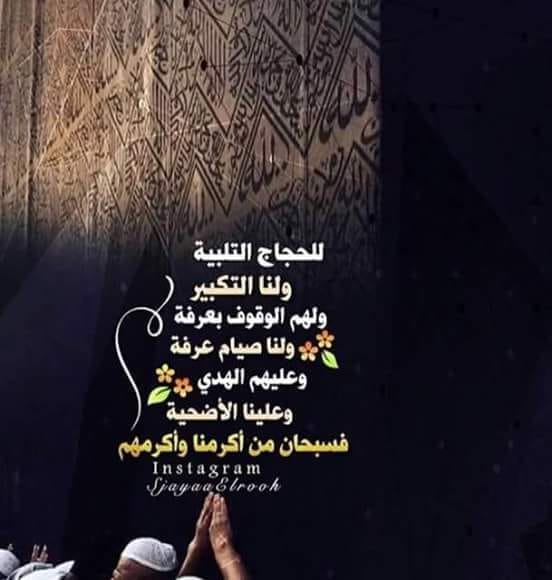 للحجاج التلبية
ولنا التكبير
ولهم الوقوف بعرفة
ولنا صيام عرفة
وعليهم الهدي
وعلينا الأضحية
فسبحان من أكرمنا وأكرمهم
Instagram
SjayaaElrooh